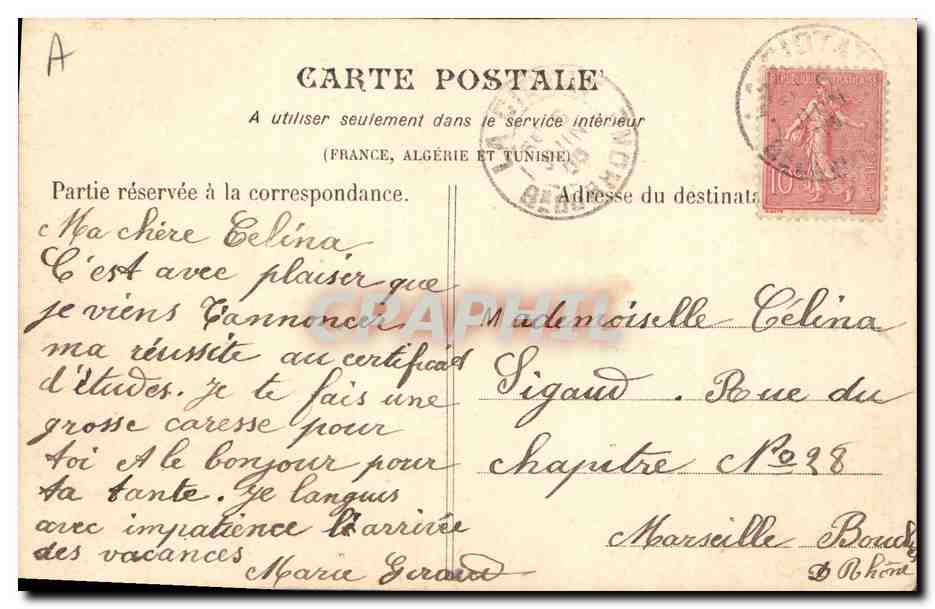 A
CARTE POSTALE
A utiliser seulement dans le service intérieur
(FRANCE, ALGÉRIE ET TUNISIE)
Partie réservée à la correspondance.
Ma chère Celina
C'est avec plaisir que
je viens t'annoncer
ma réussite au certificat
d'études. Je te fais une
grosse caresse pour
toi et le bonjour pour
ta tante. Je languis
avec impatience l'arrivée
des vacances
Marie Geraud
Adresse du destinata
Mademoiselle Célina
Sigaud. Rue du
chapitre No 28
Marseille Bouches
D Rhône
10
JUIN
CRAPHIL